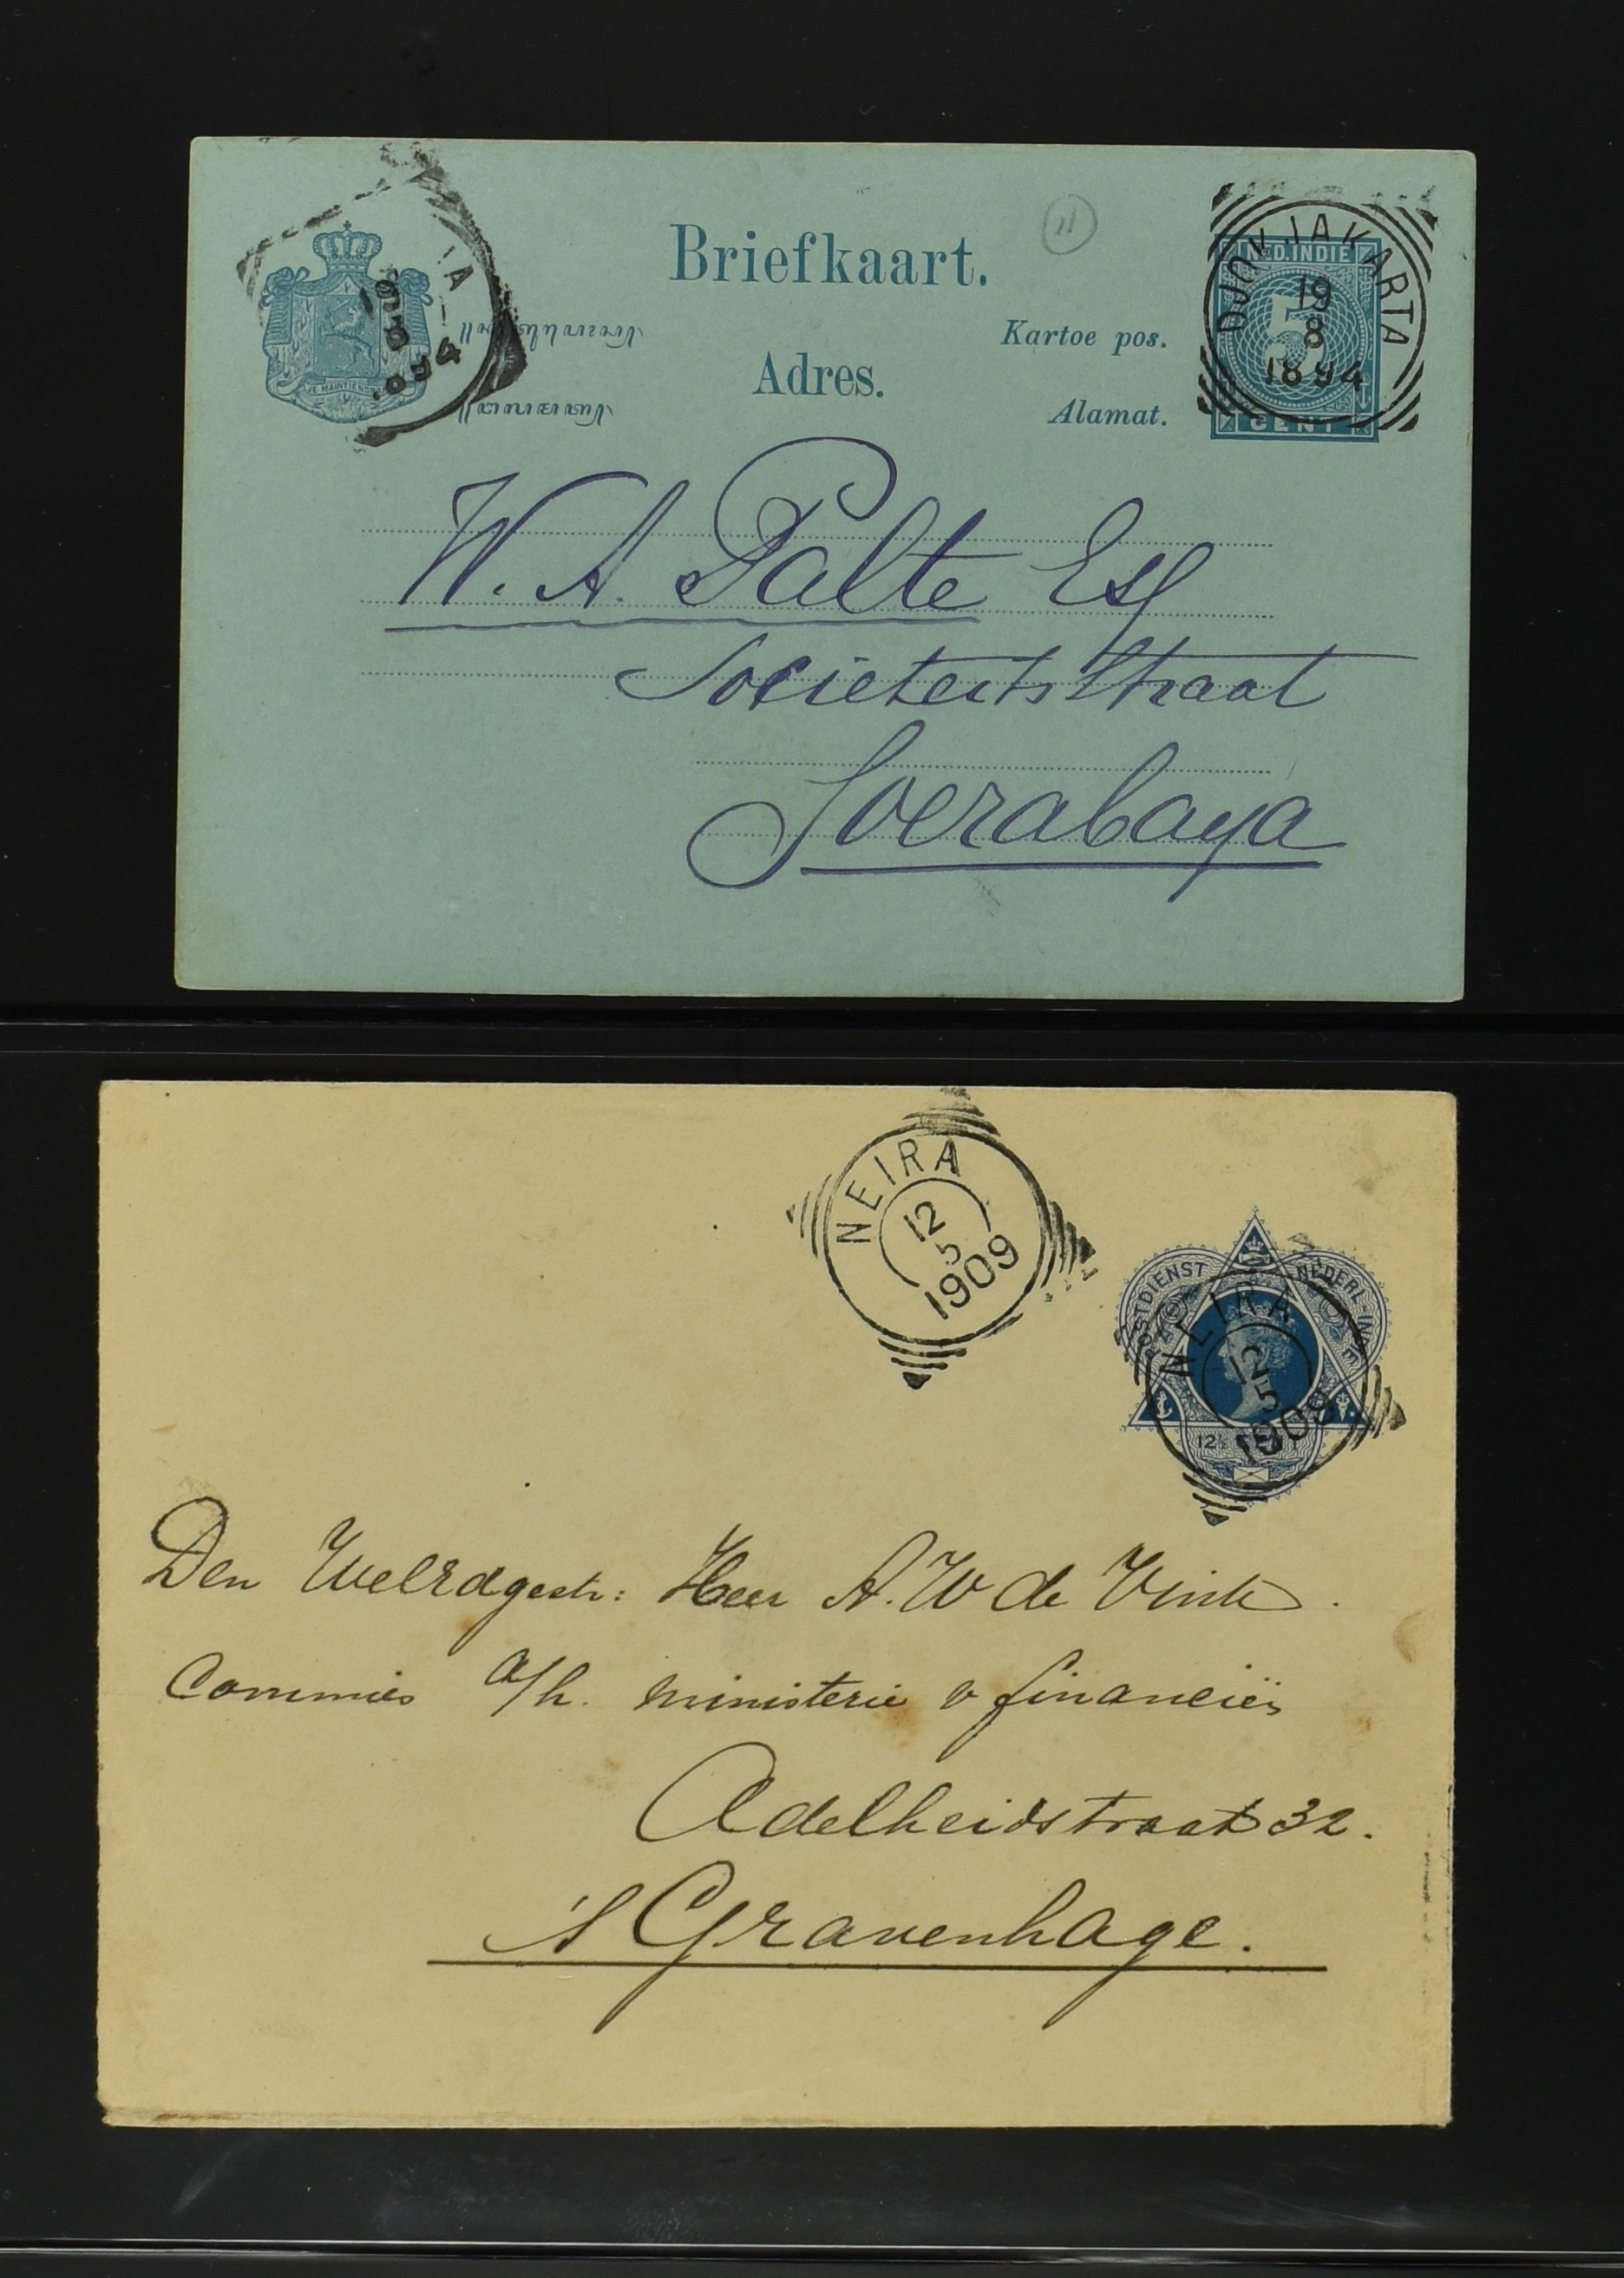 Briefkaart.
Adres.
Kartoe pos.
Alamat.
JE MAINTIENDRAI
IA
19
8
1894
NED. INDIE
5
CENT
DJOKJAKARTA
19
8
1894
W. A. Palte Esq
Societeitsstraat
Soerabaya
NEIRA
12
5
1909
POSTDIENST NEDERL-INDIE
12½ CENT
NEIRA
12
5
1909
Den Weledgestr: Heer A. W de Vink.
Commies a/h. ministerie v financiën
Adelheidstraat 32.
's Gravenhage.